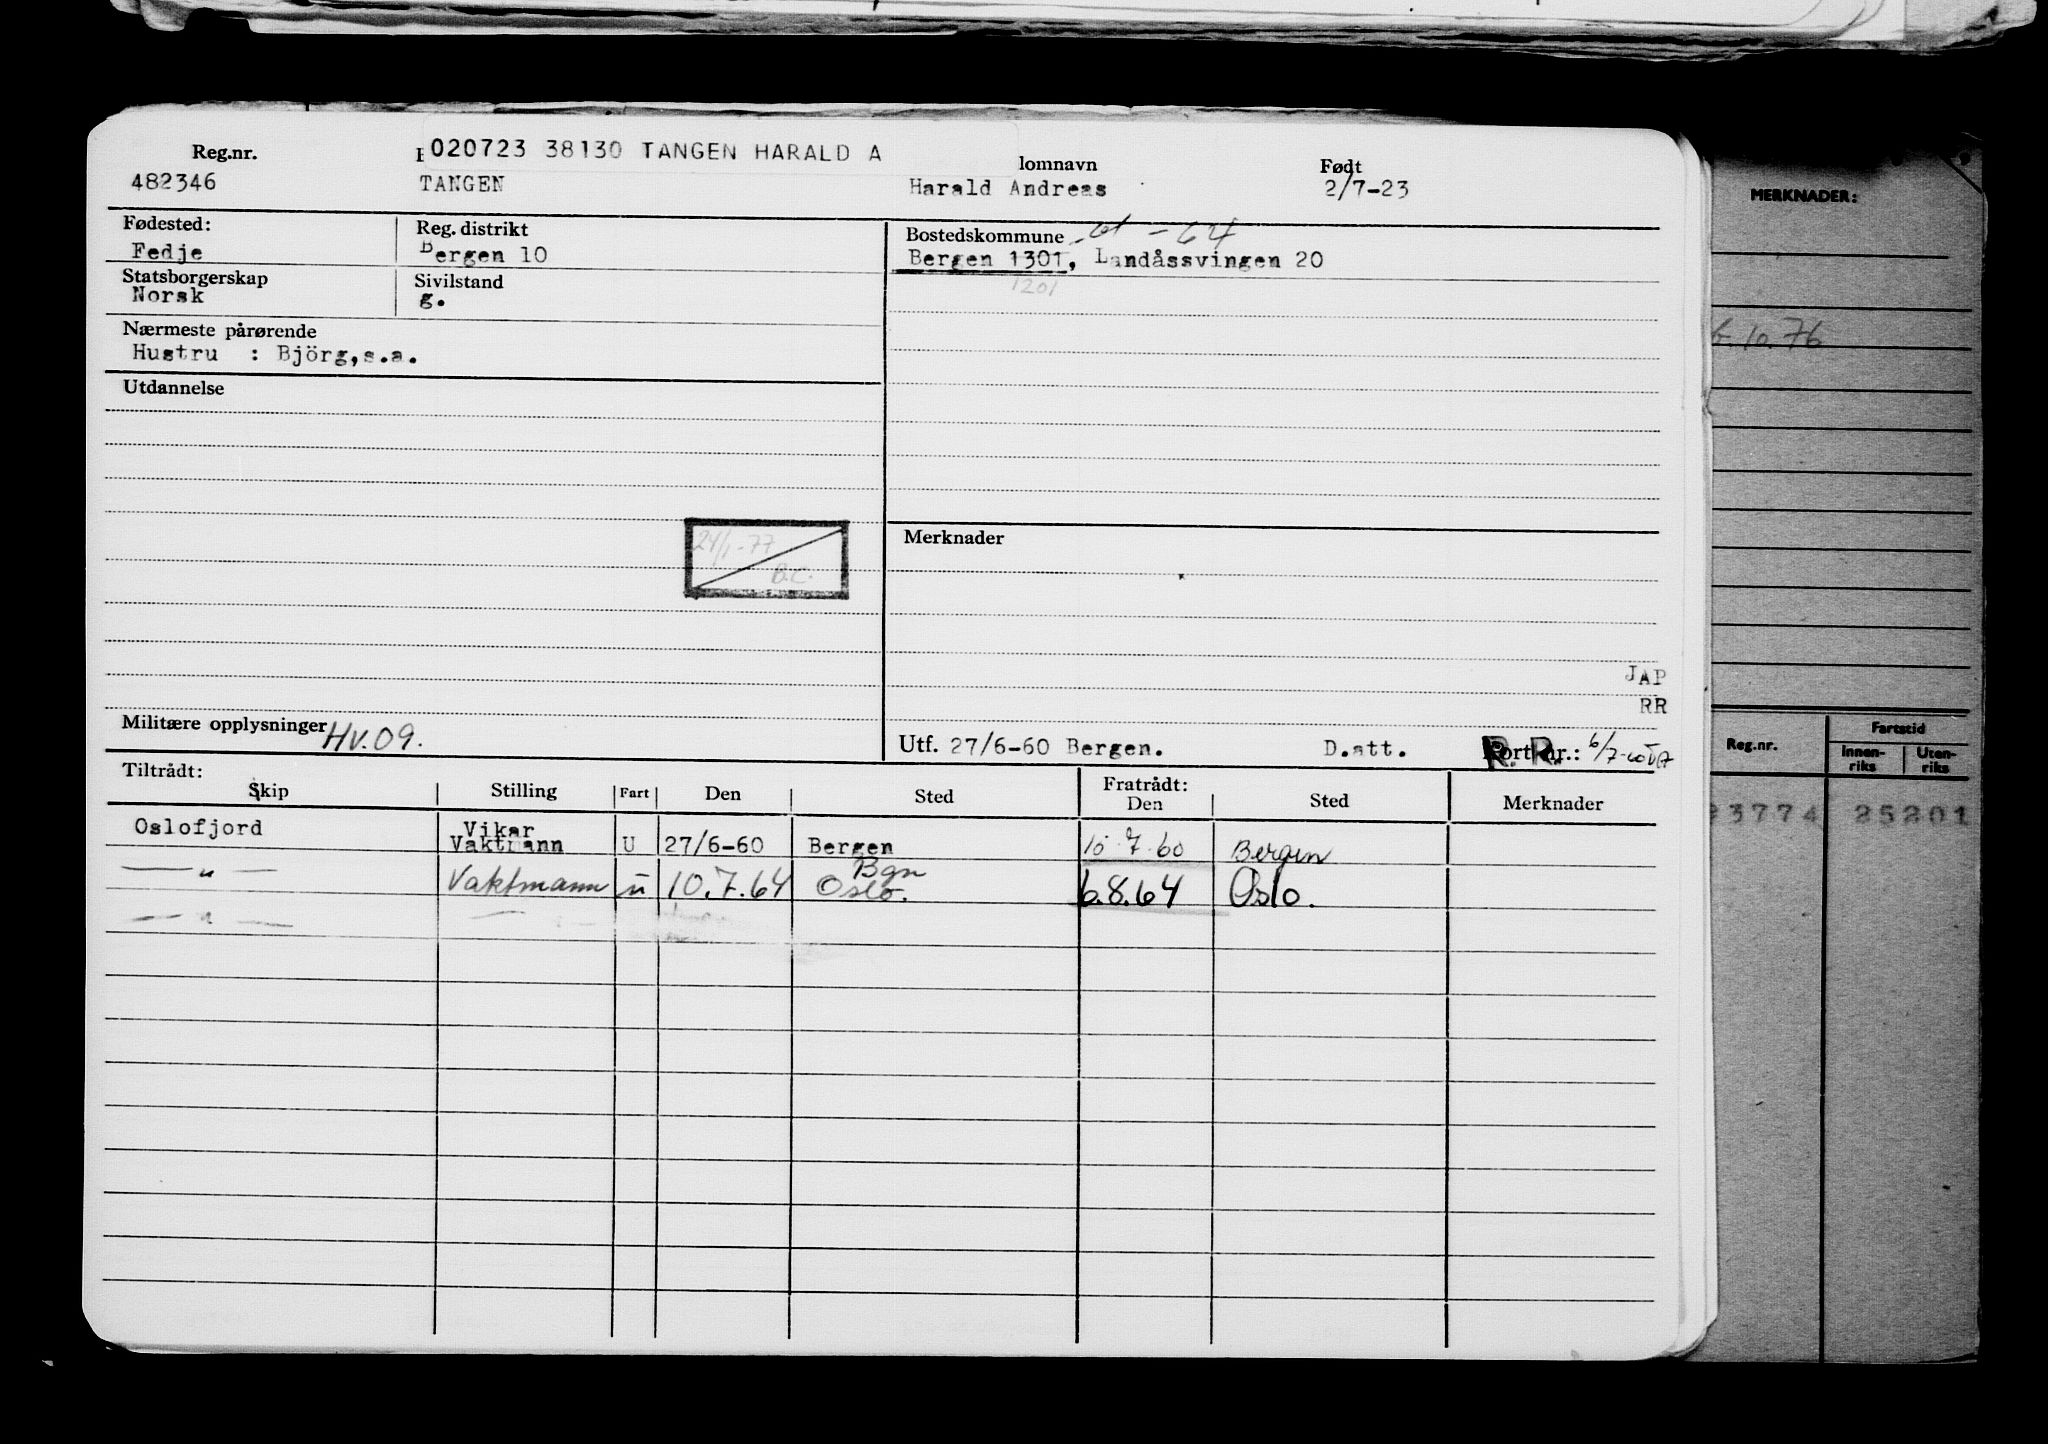 020723 38130 TANGEN HARALD A
Reg.nr. lomnavn Født
482346 TANGEN Harald Andreas 2/7-23
Fødested: Reg. distrikt Bostedskommune -64
Fedje Bergen 10 Bergen 1301, Landåssvingen 20
1201
Statsborgerskap Sivilstand
Norsk g.
Nærmeste pårørende
Hustru : Björg,s.a.
Utdannelse
24/1-77
B.C.
Merknader
JAP
RR
Militære opplysninger HV.09.
Utf. 27/6-60 Bergen. D.att. R. R. Fortnr.: 6/7-60
Tiltrådt: Fratrådt:
Skip Stilling Fart Den Sted Den Sted Merknader
Oslofjord Vikar
Vaktmann U 27/6-60 Bergen 10.7.60 Bergen
— " — Vaktmann u 10.7.64 Bgn
Oslo. 6.8.64 Oslo.
— " — —
MERKNADER:
.10.76
Reg.nr. Fartstid
Innen-
riks Uten-
riks
3774 25201